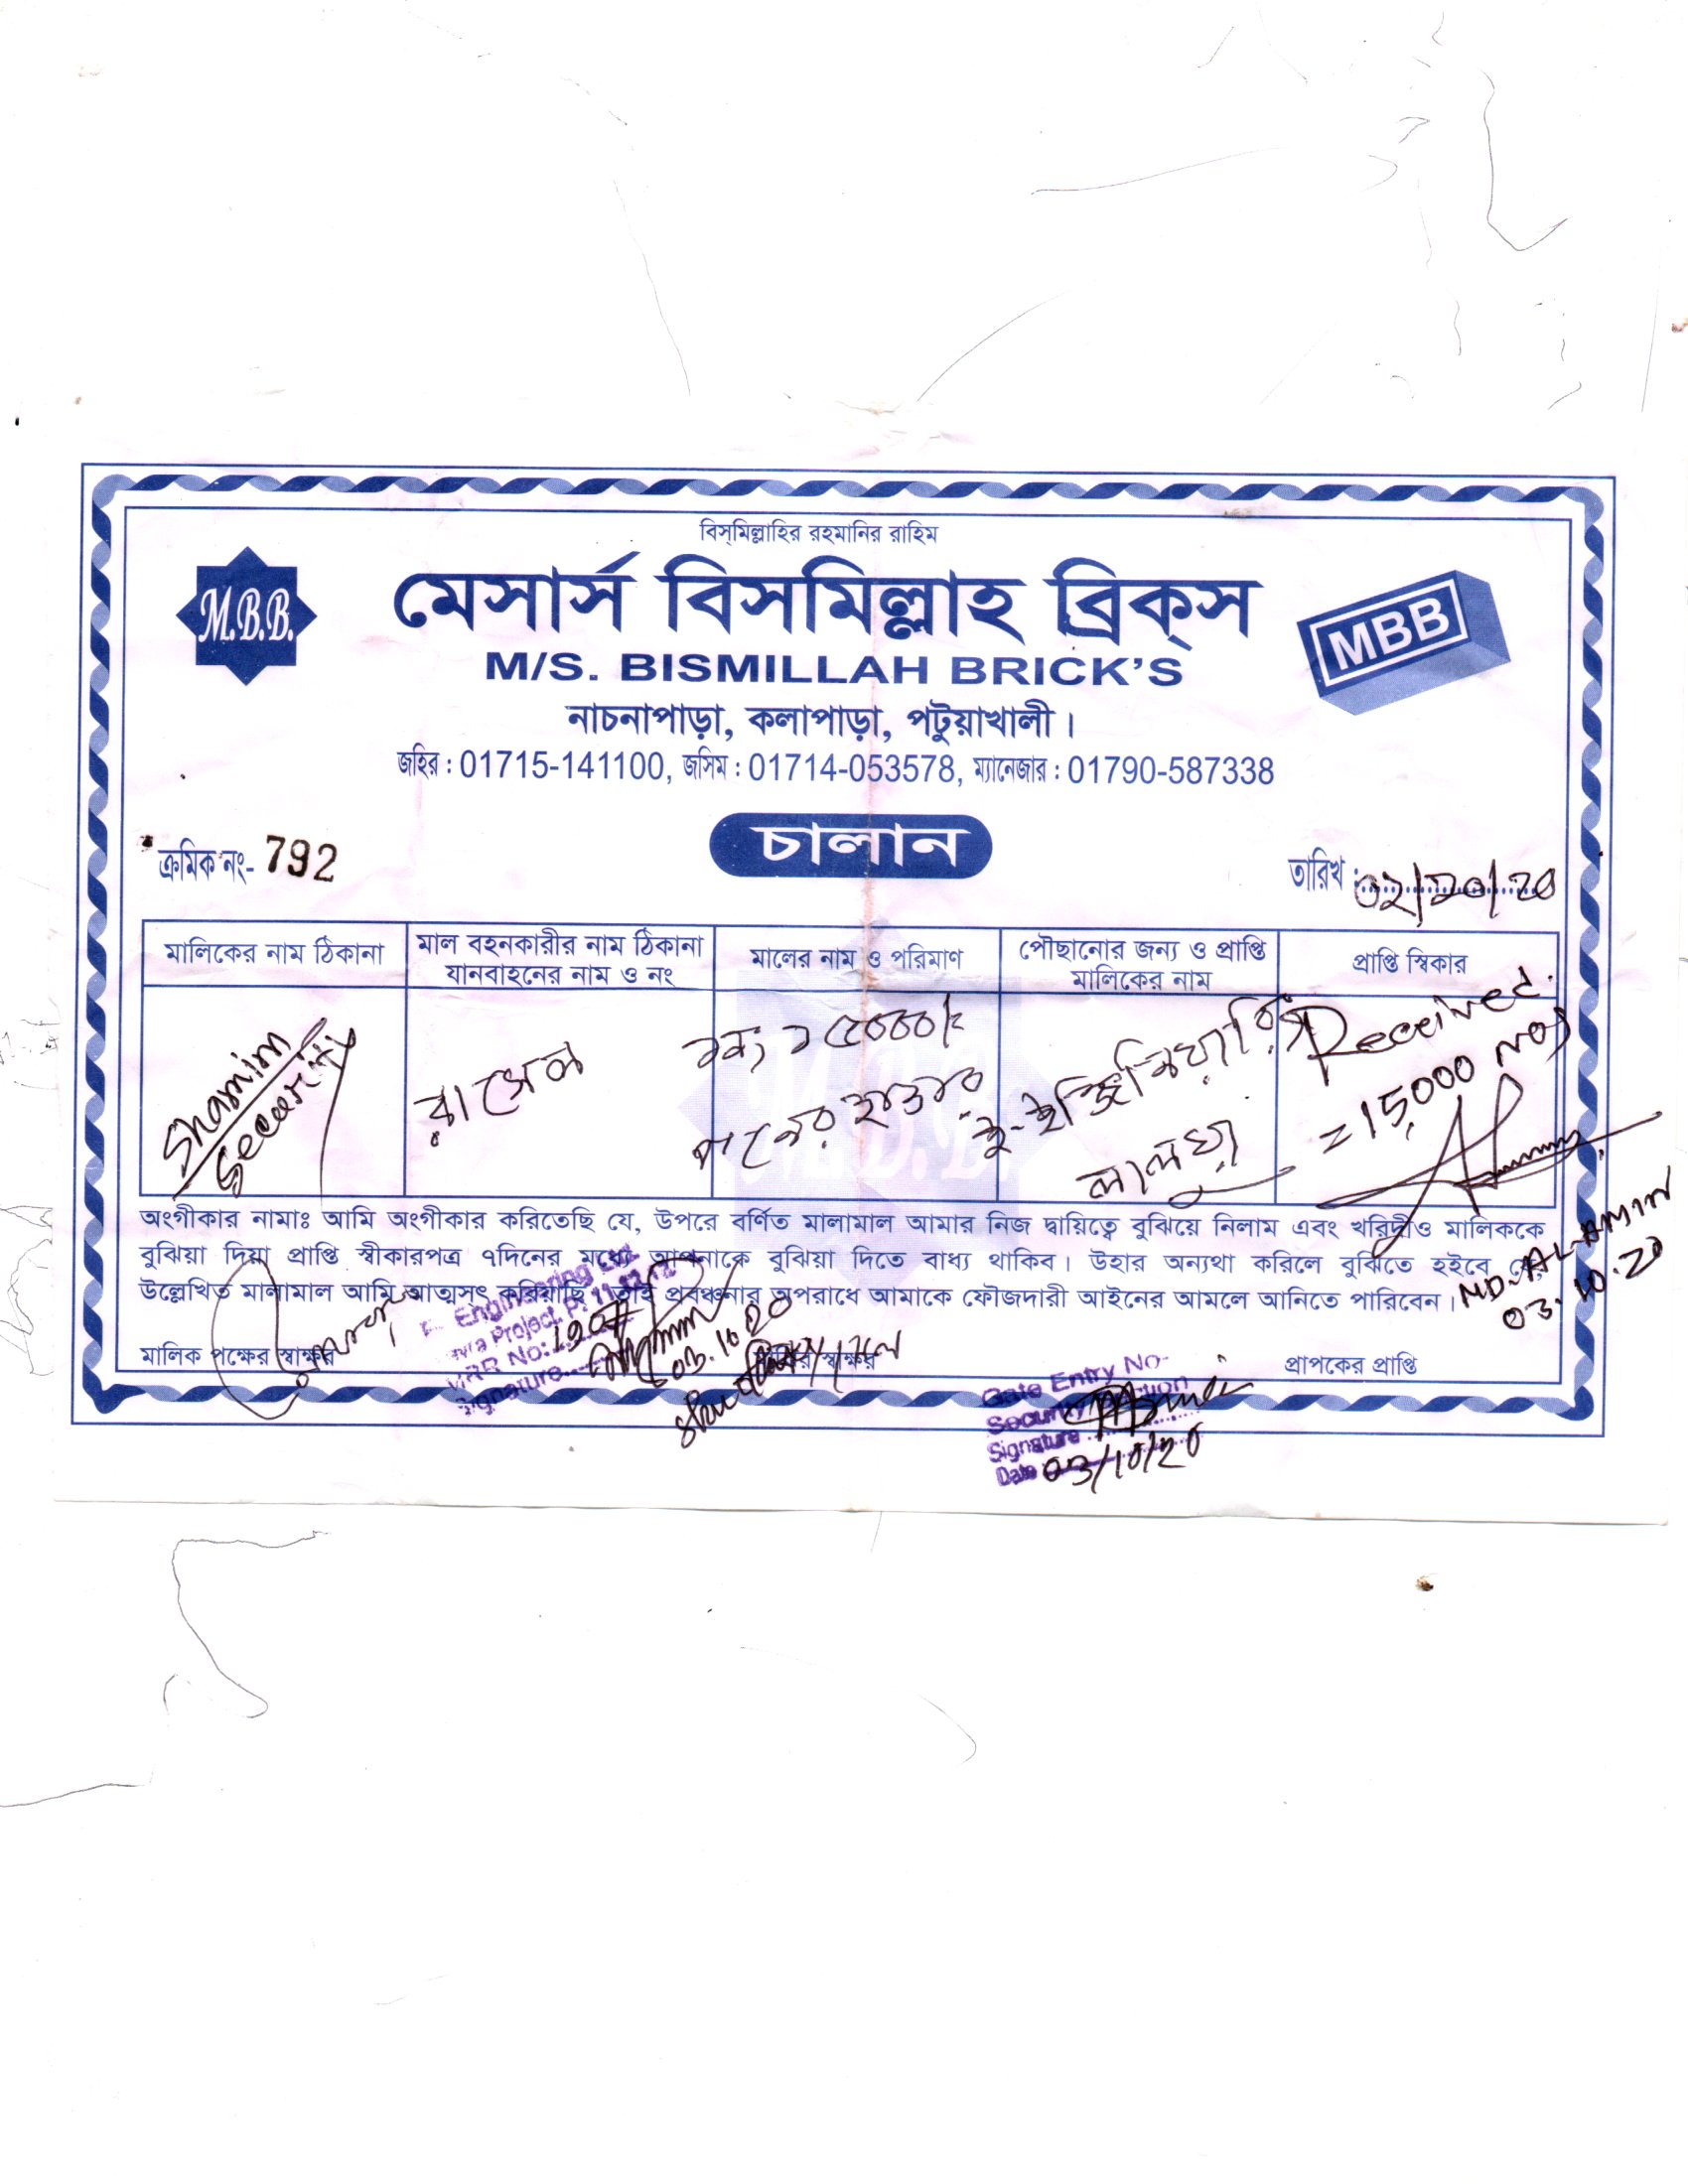 বিস্‌মিল্লাহির রহমানির রাহিম
M.B.B.
মেসার্স বিসমিল্লাহ ব্রিক্‌স
MBB
M/S. BISMILLAH BRICK'S
নাচনাপাড়া, কলাপাড়া, পটুয়াখালী।
জহির : 01715-141100, জসিম : 01714-053578, ম্যানেজার : 01790-587338
চালান
ক্রমিক নং- 792
তারিখ : 02/10/20
মালিকের নাম ঠিকানা
মাল বহনকারীর নাম ঠিকানা
যানবাহনের নাম ও নং
মালের নাম ও পরিমাণ
পৌছানোর জন্য ও প্রাপ্তি
মালিকের নাম
প্রাপ্তি স্বিকার
Shamim
Security
রাসেল
১৫০০০/=
পনের হাজার
ই-ইঞ্জিনিয়ারিং
লালুয়া
Received.
=15,000 nos
MD. AL-AMIN
03.10.20
অংগীকার নামাঃ আমি অংগীকার করিতেছি যে, উপরে বর্ণিত মালামাল আমার নিজ দ্বায়িত্বে বুঝিয়ে নিলাম এবং খরিদ্দীও মালিককে
বুঝিয়া দিয়া প্রাপ্তি স্বীকারপত্র ৭দিনের মধ্যে আপনাকে বুঝিয়া দিতে বাধ্য থাকিব। উহার অন্যথা করিলে বুঝিতে হইবে যে,
উল্লেখিত মালামাল আমি আত্মসৎ করিয়াছি। তাই প্রবঞ্চনার অপরাধে আমাকে ফৌজদারী আইনের আমলে আনিতে পারিবেন।
Engineering Ltd.
Project
MRR No:
Signature
03.10.20
মালিক পক্ষের স্বাক্ষর
স্বাক্ষর
প্রাপকের প্রাপ্তি
Gate Entry No-
Security
Signature
Date 03/10/20